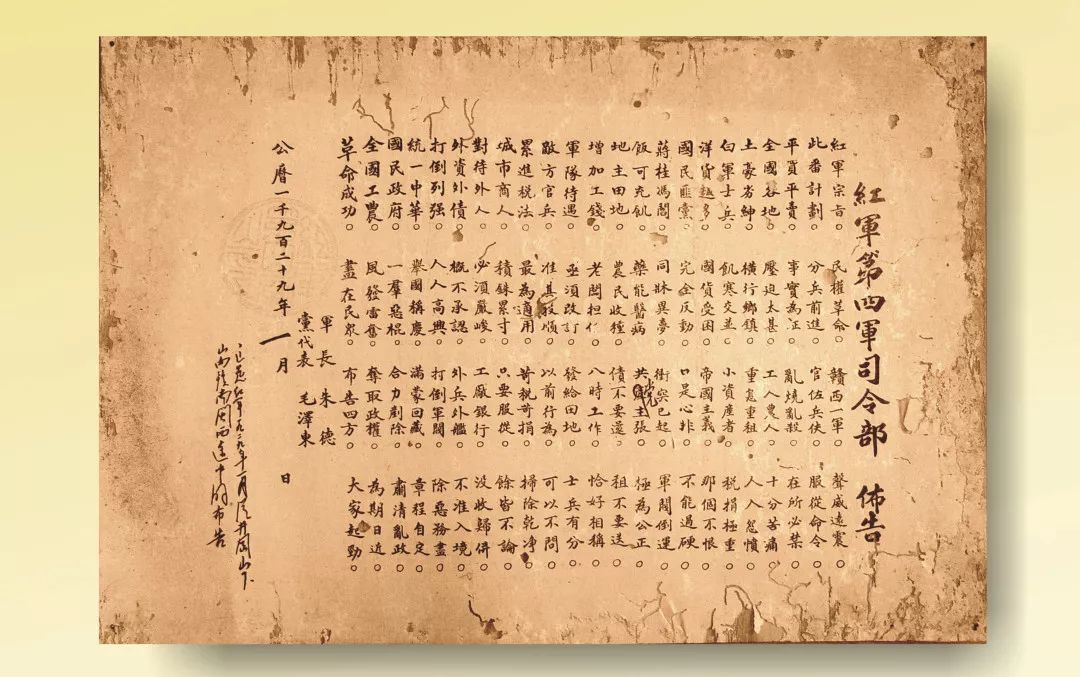 紅軍第四軍司令部 佈告
紅軍宗旨。民權革命。贛西一軍。聲威遠震。
此番計劃。分兵前進。官佐兵伕。服從命令。
平買平賣。事實為証。亂燒亂殺。在所必禁。
全國各地。壓迫太甚。工人農人。十分苦痛。
土豪劣紳。橫行鄉鎮。重息重租。人人怨憤。
白軍士兵。飢寒交並。小資產者。税捐極重。
洋貨越多。國貨受困。帝國主義。那個不恨。
國民匪黨。完全反動。口是心非。不能過硬。
蔣桂馮閻。同牀異夢。衝突已起。軍閥倒運。
飯可充飢。藥能醫病。共黨主張。極為公正。
地主田地。農民收種。債不要還。租不要送。
增加工錢。老闆担任。八時工作。恰好相稱。
軍隊待遇。亟須改訂。發給田地。士兵有分。
敵方官兵。准其投順。以前行為。可以不問。
累進税法。最為適用。苛税苛捐。掃除乾净。
城市商人。積銖累寸。只要服從。餘皆不論。
對待外人。必須嚴峻。工廠銀行。没收歸併。
外資外債。概不承認。外兵外艦。不准入境。
打倒列强。人人高興。打倒軍閥。除惡務盡。
統一中華。舉國稱慶。滿蒙回藏。章程自定。
國民政府。一羣惡棍。合力剷除。肅清亂政。
全國工農。風發雷奮。奪取政權。為期日近。
革命成功。盡在民眾。布告四方。大家起勁。
軍長 朱德
黨代表 毛澤東
公曆一千九百二十九年一月 日
一九二九年一月從井岡山下
山向贛南閩西 布告